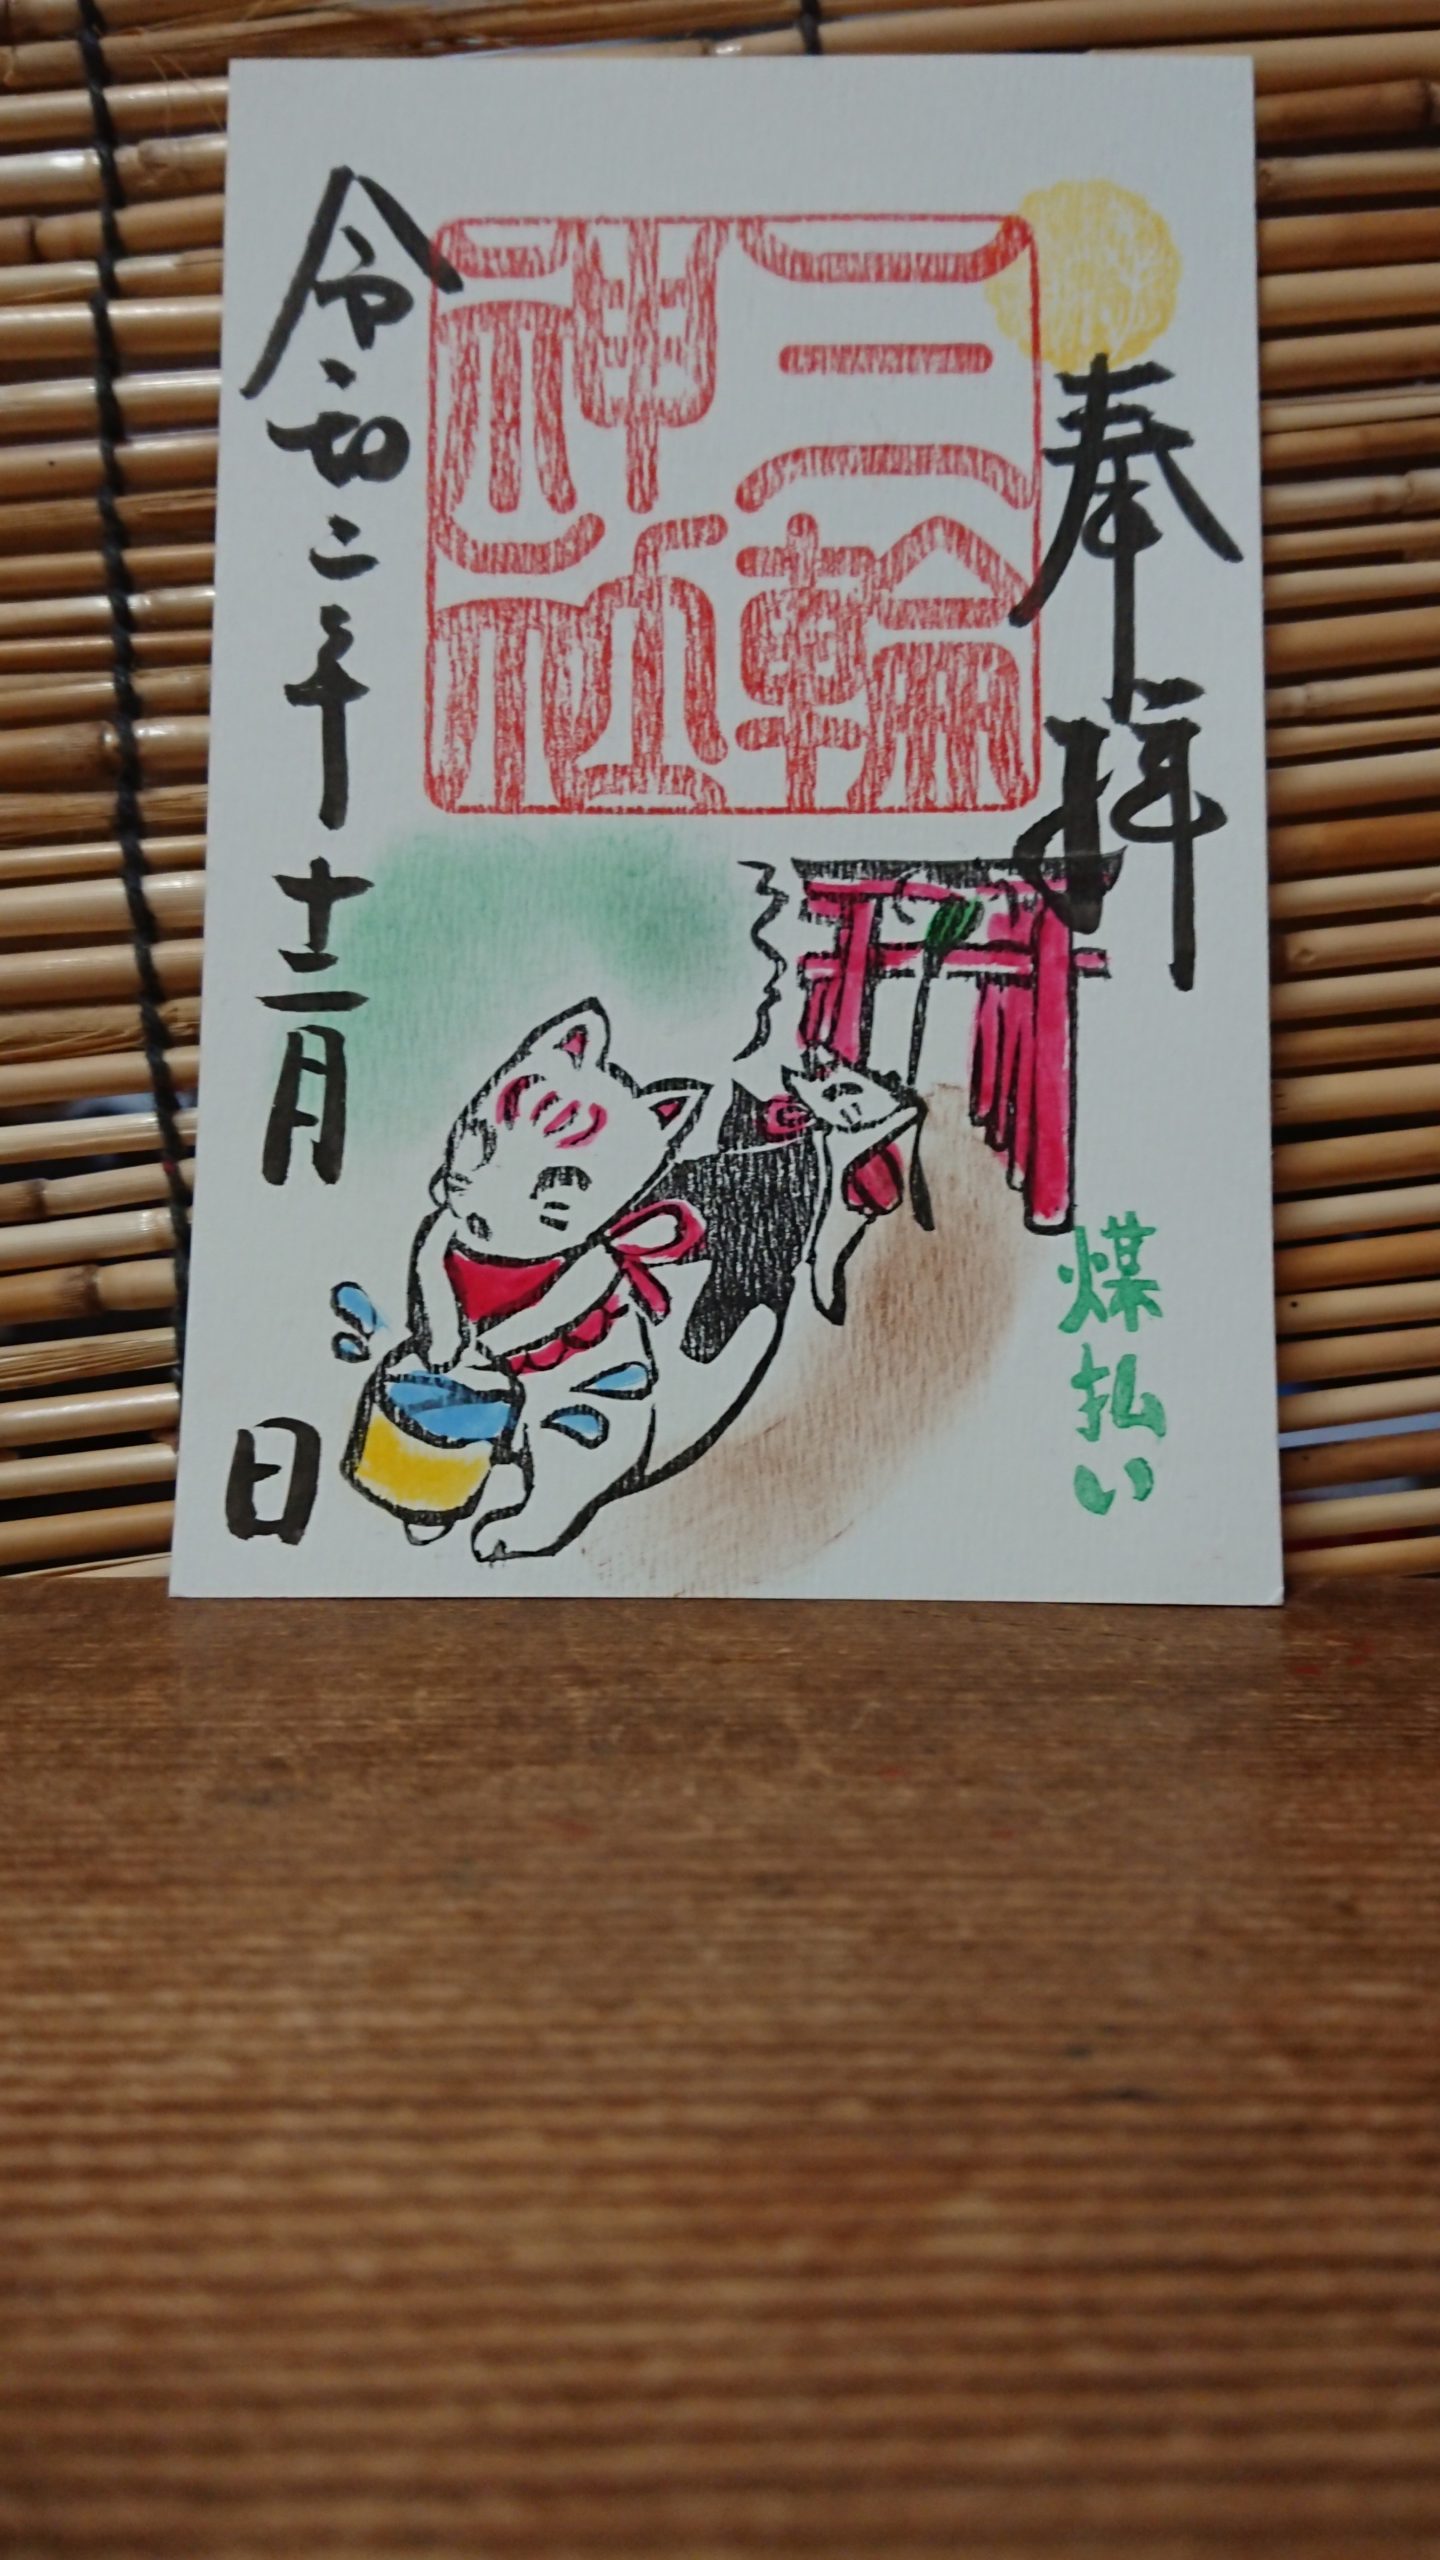 奉拝
三輪
神社
煤払い
令和二年十二月
日